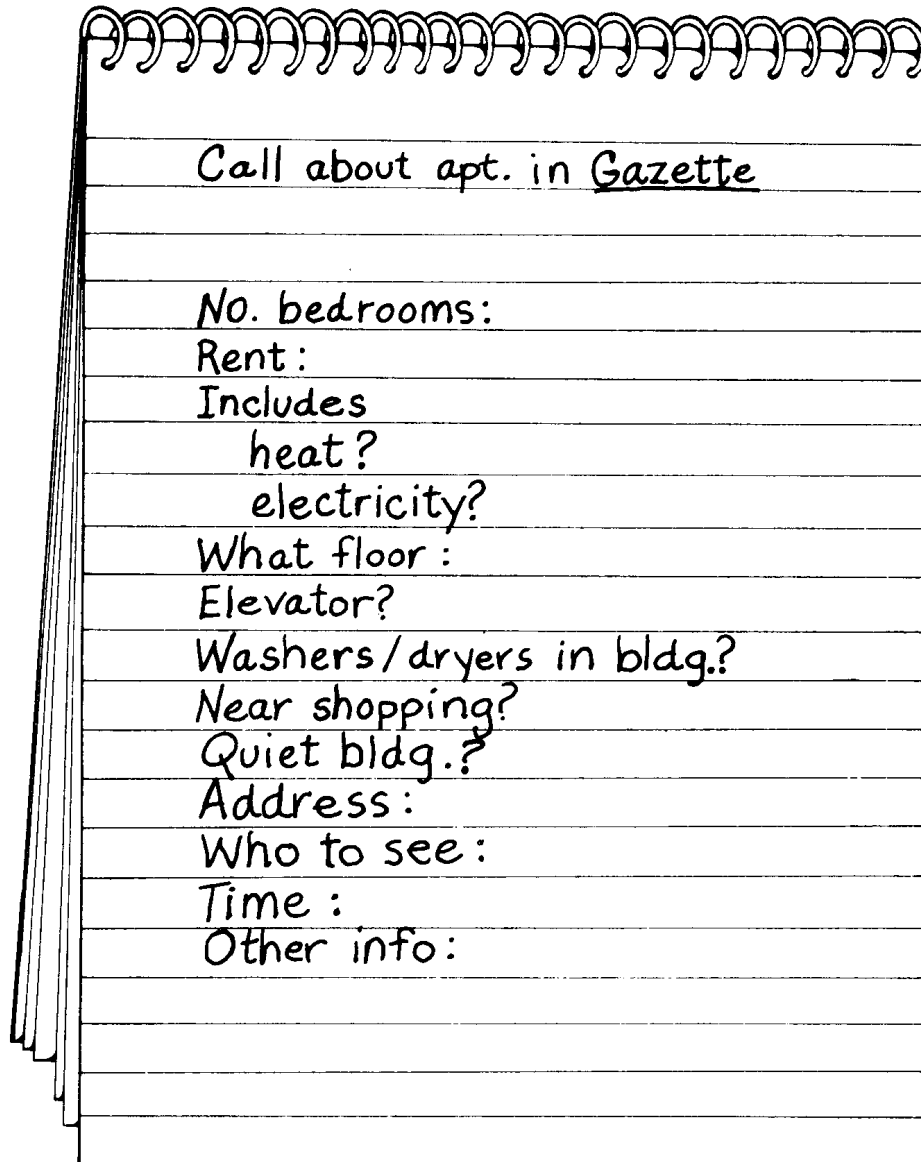 Call about apt. in Gazette
No. bedrooms:
Rent:
Includes
heat?
electricity?
What floor:
Elevator?
Washers/dryers in bldg.?
Near shopping?
Quiet bldg.?
Address:
Who to see:
Time:
Other info: